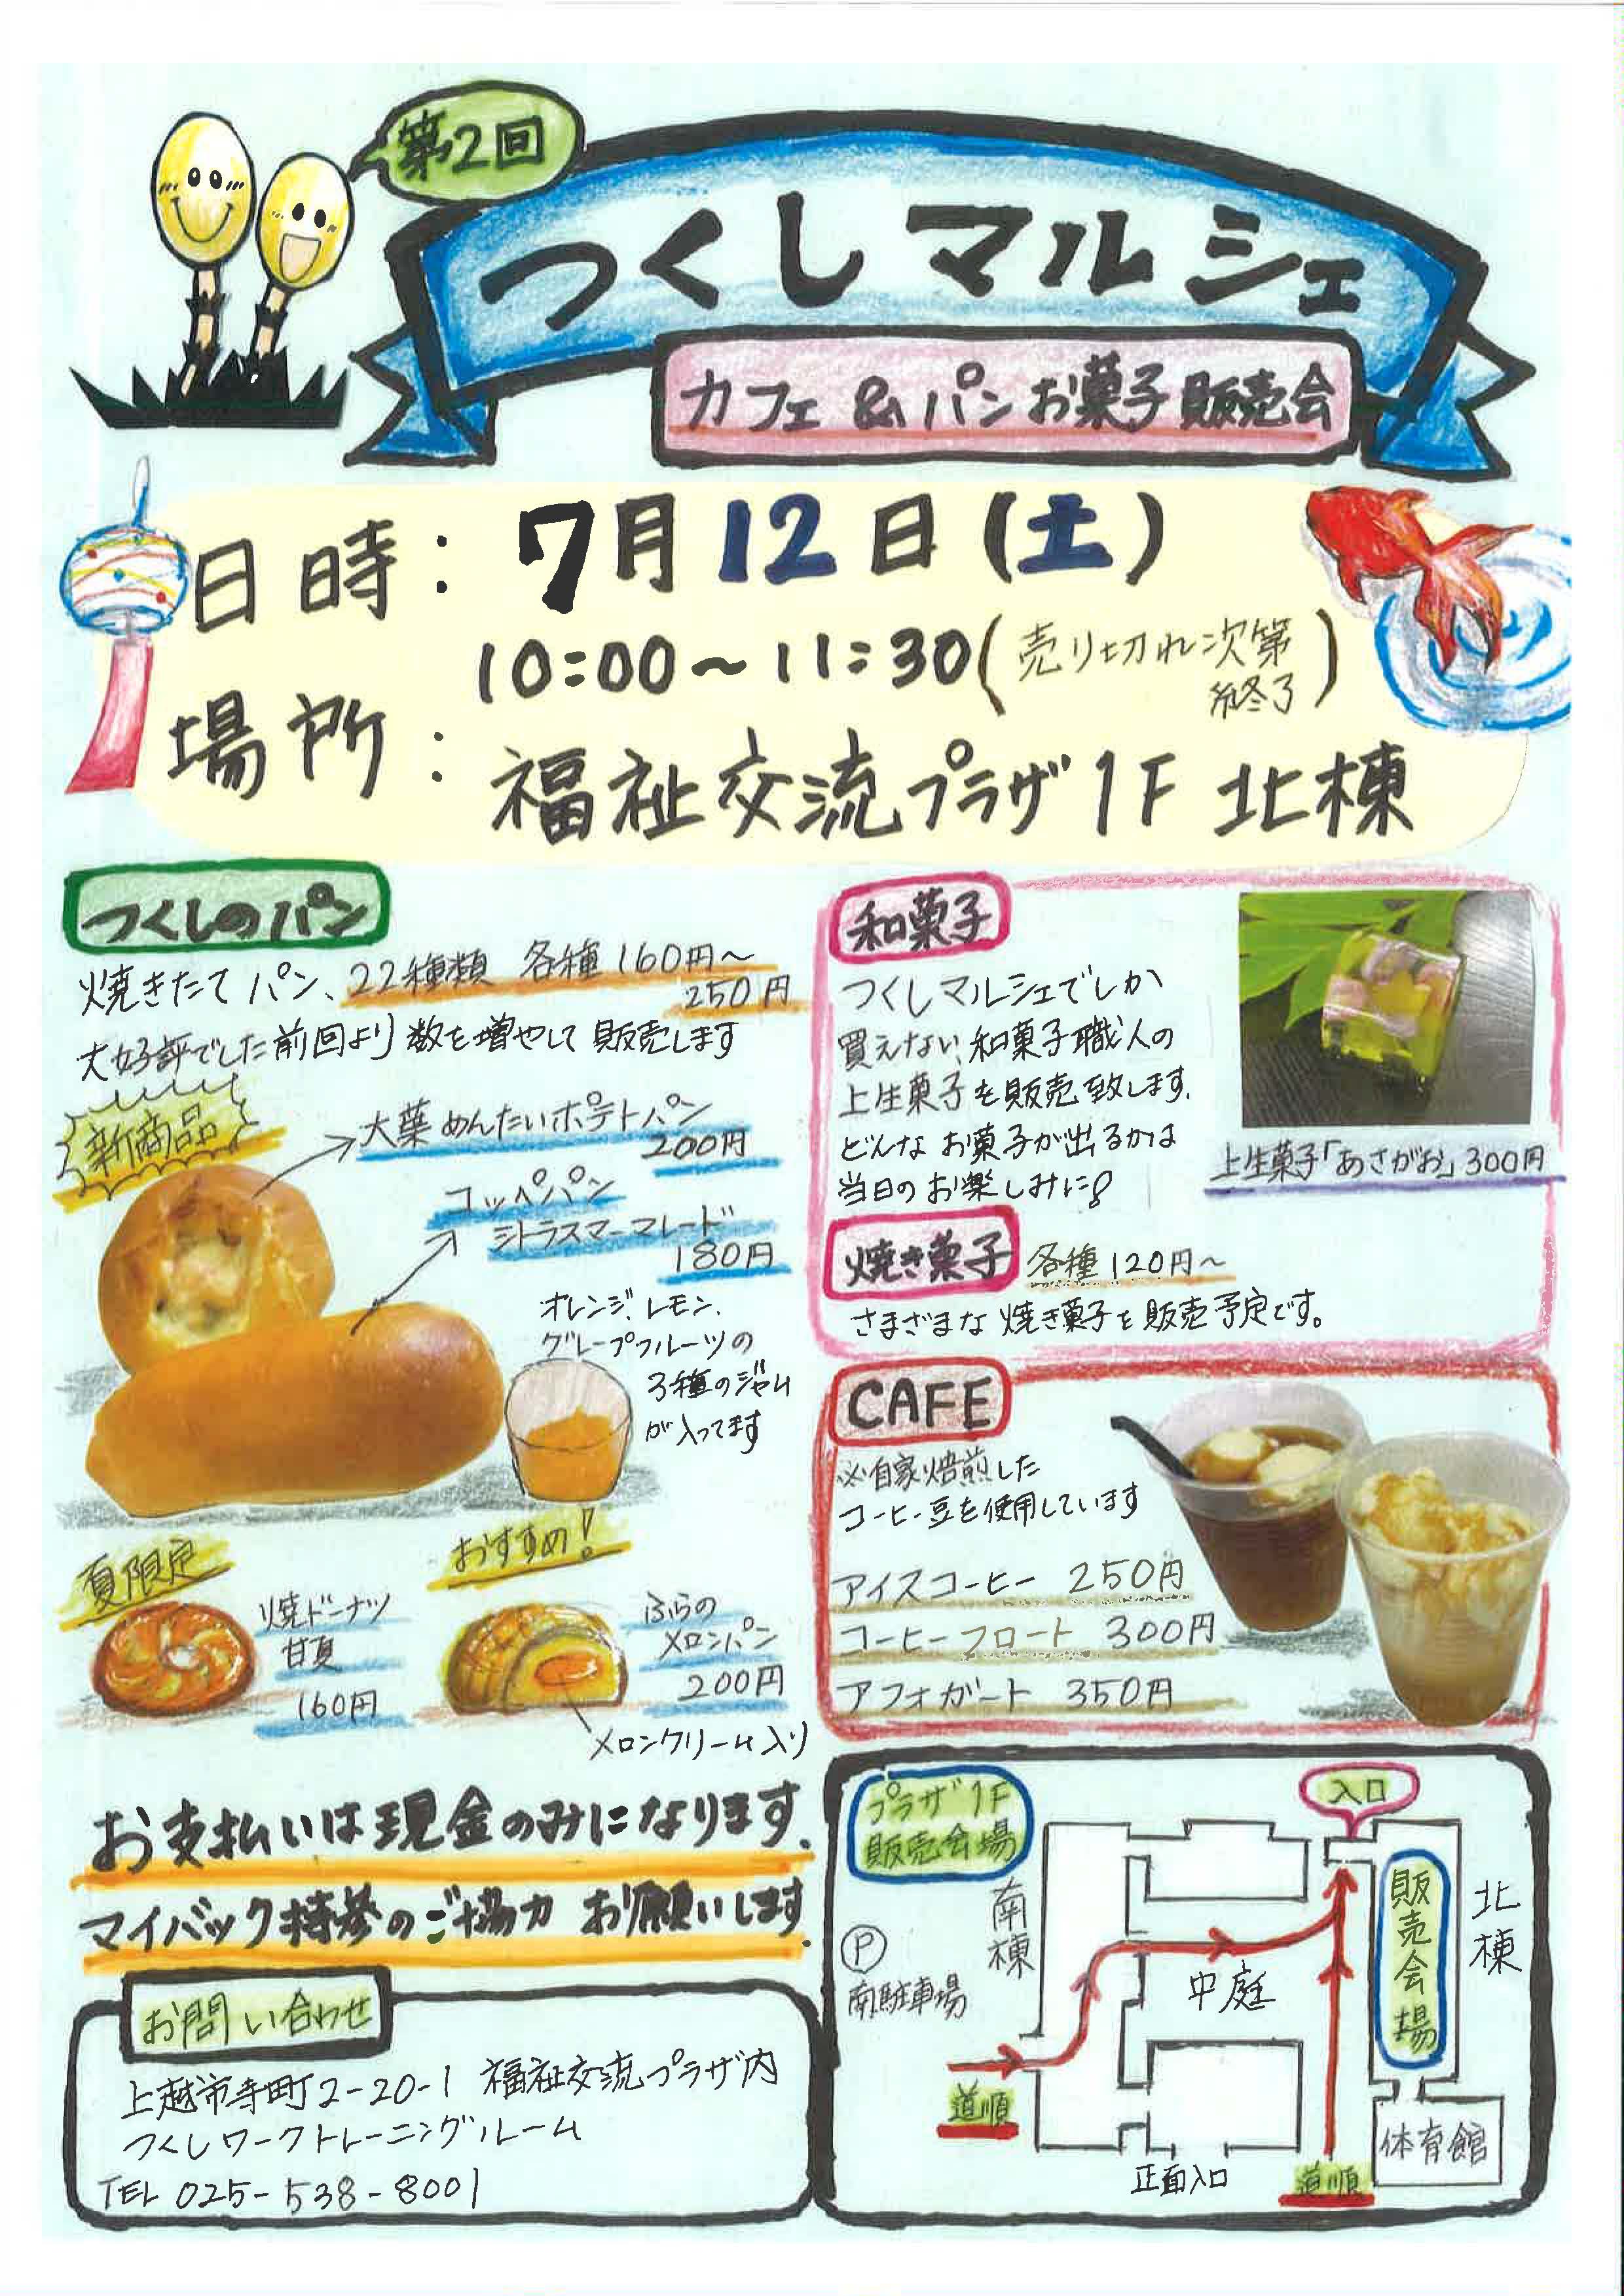 第2回
つくしマルシェ
カフェ&パンお菓子販売会
日時：7月12日(土)
10:00～11:30(売り切れ次第
終了)
場所：福祉交流プラザ1F 北棟
つくしのパン
焼きたてパン、22種類 各種160円～
250円
大好評でした前回より数を増やして販売します
新商品
大葉めんたいポテトパン
200円
コッペパン
シトラスマーマレード
180円
オレンジ、レモン、
グレープフルーツの
3種のジャム
が入ってます
夏限定
焼ドーナツ
甘夏
160円
おすすめ!
ふらの
メロンパン
200円
メロンクリーム入り
和菓子
つくしマルシェでしか
買えない、和菓子職人の
上生菓子を販売致します。
どんなお菓子が出るかは
当日のお楽しみに!
上生菓子「あさがお」300円
焼き菓子 各種120円～
さまざまな焼き菓子を販売予定です。
CAFE
※自家焙煎した
コーヒー豆を使用しています
アイスコーヒー 250円
コーヒーフロート 300円
アフォガート 350円
お支払いは現金のみになります。
マイバック持参のご協力お願いします。
お問い合わせ
上越市寺町2-20-1 福祉交流プラザ内
つくしワークトレーニングルーム
TEL 025-538-8001
プラザ1F
販売会場
入口
南棟
北棟
販売会場
P
南駐車場
中庭
道順
正面入口
道順
体育館